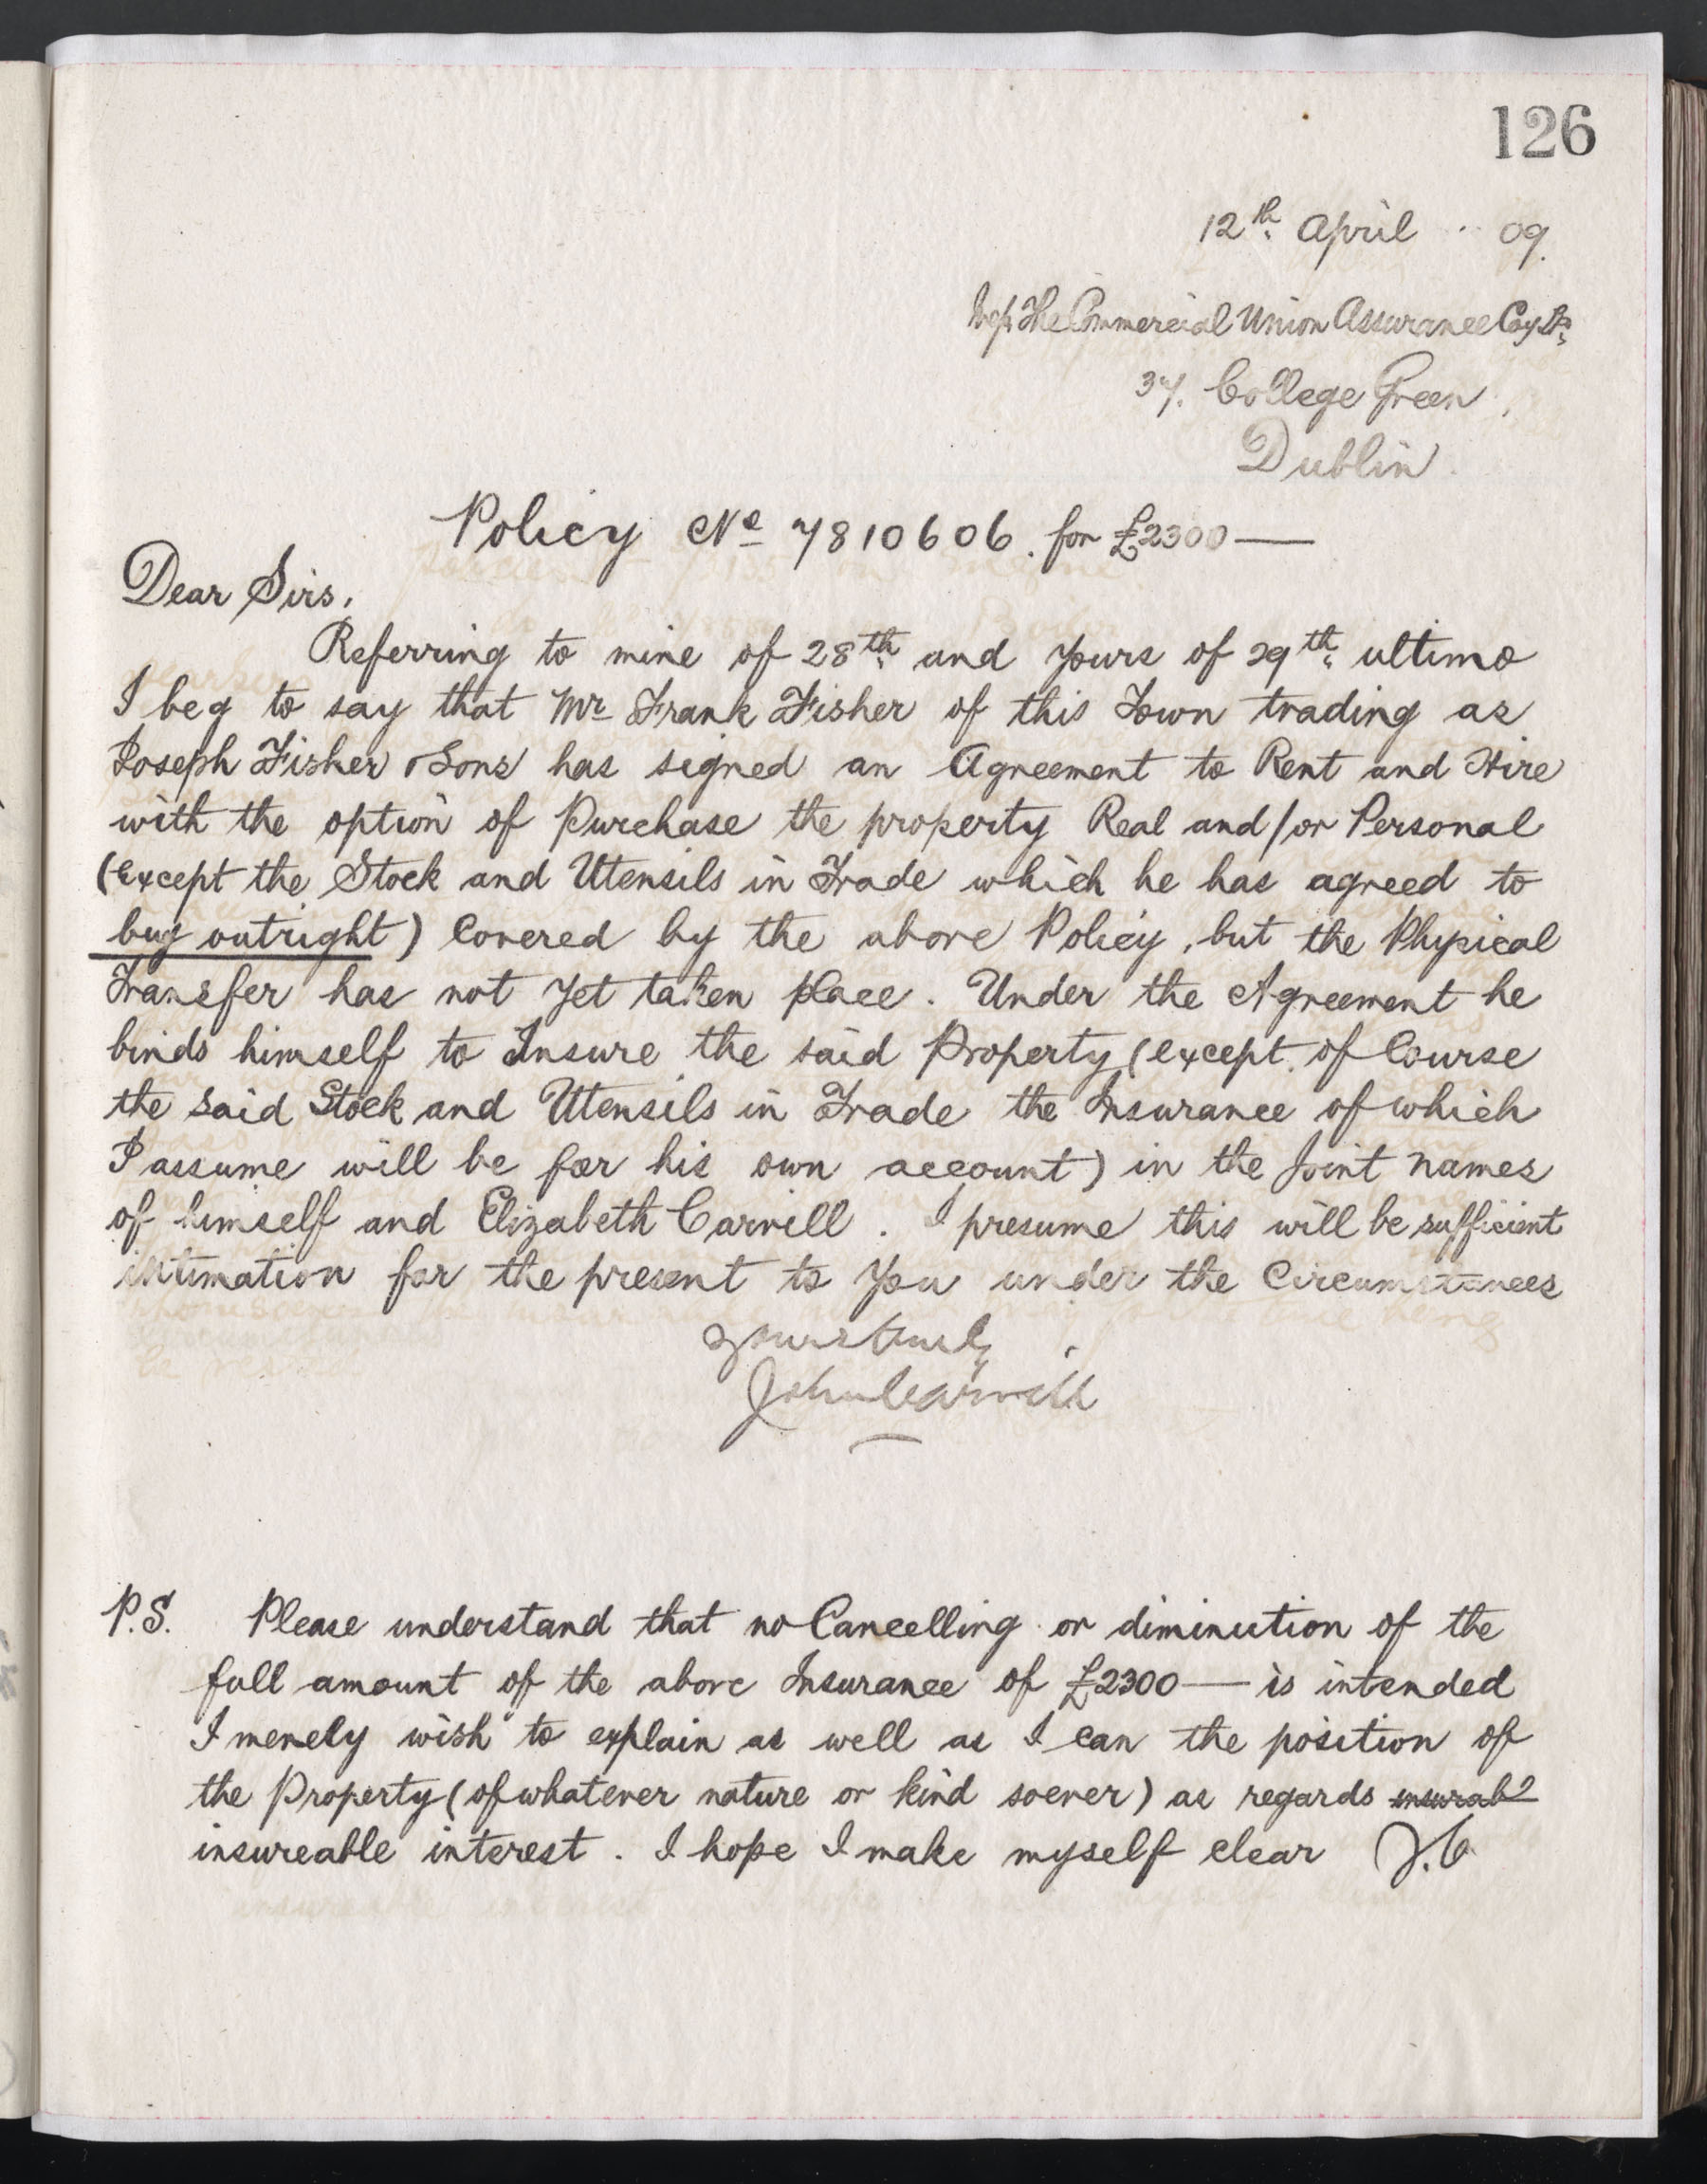 126
12th April 09.
The Commercial Union Assurance Coy Ld
37. College Green,
Dublin.
Policy No 7810606. for £2300—
Dear Sirs,
Referring to mine of 28th and yours of 29th ultimo
I beg to say that Mr Frank Fisher of this Town trading as
Joseph Fisher & Sons has signed an Agreement to Rent and Hire
with the option of Purchase the property Real and/or Personal
(except the Stock and Utensils in Trade which he has agreed to
buy outright) Covered by the above Policy, but the Physical
Transfer has not yet taken place. Under the Agreement he
binds himself to Insure the said Property (except of Course
the said Stock and Utensils in Trade the Insurance of which
I assume will be for his own account) in the Joint names
of himself and Elizabeth Carvill. I presume this will be sufficient
intimation for the present to you under the Circumstances
Yours truly
John Carvill
P.S. Please understand that no Cancelling or diminution of the
full amount of the above Insurance of £2300— is intended
I merely wish to explain as well as I can the position of
the Property (of whatever nature or kind soever) as regards insurab
insureable interest. I hope I make myself clear J.C